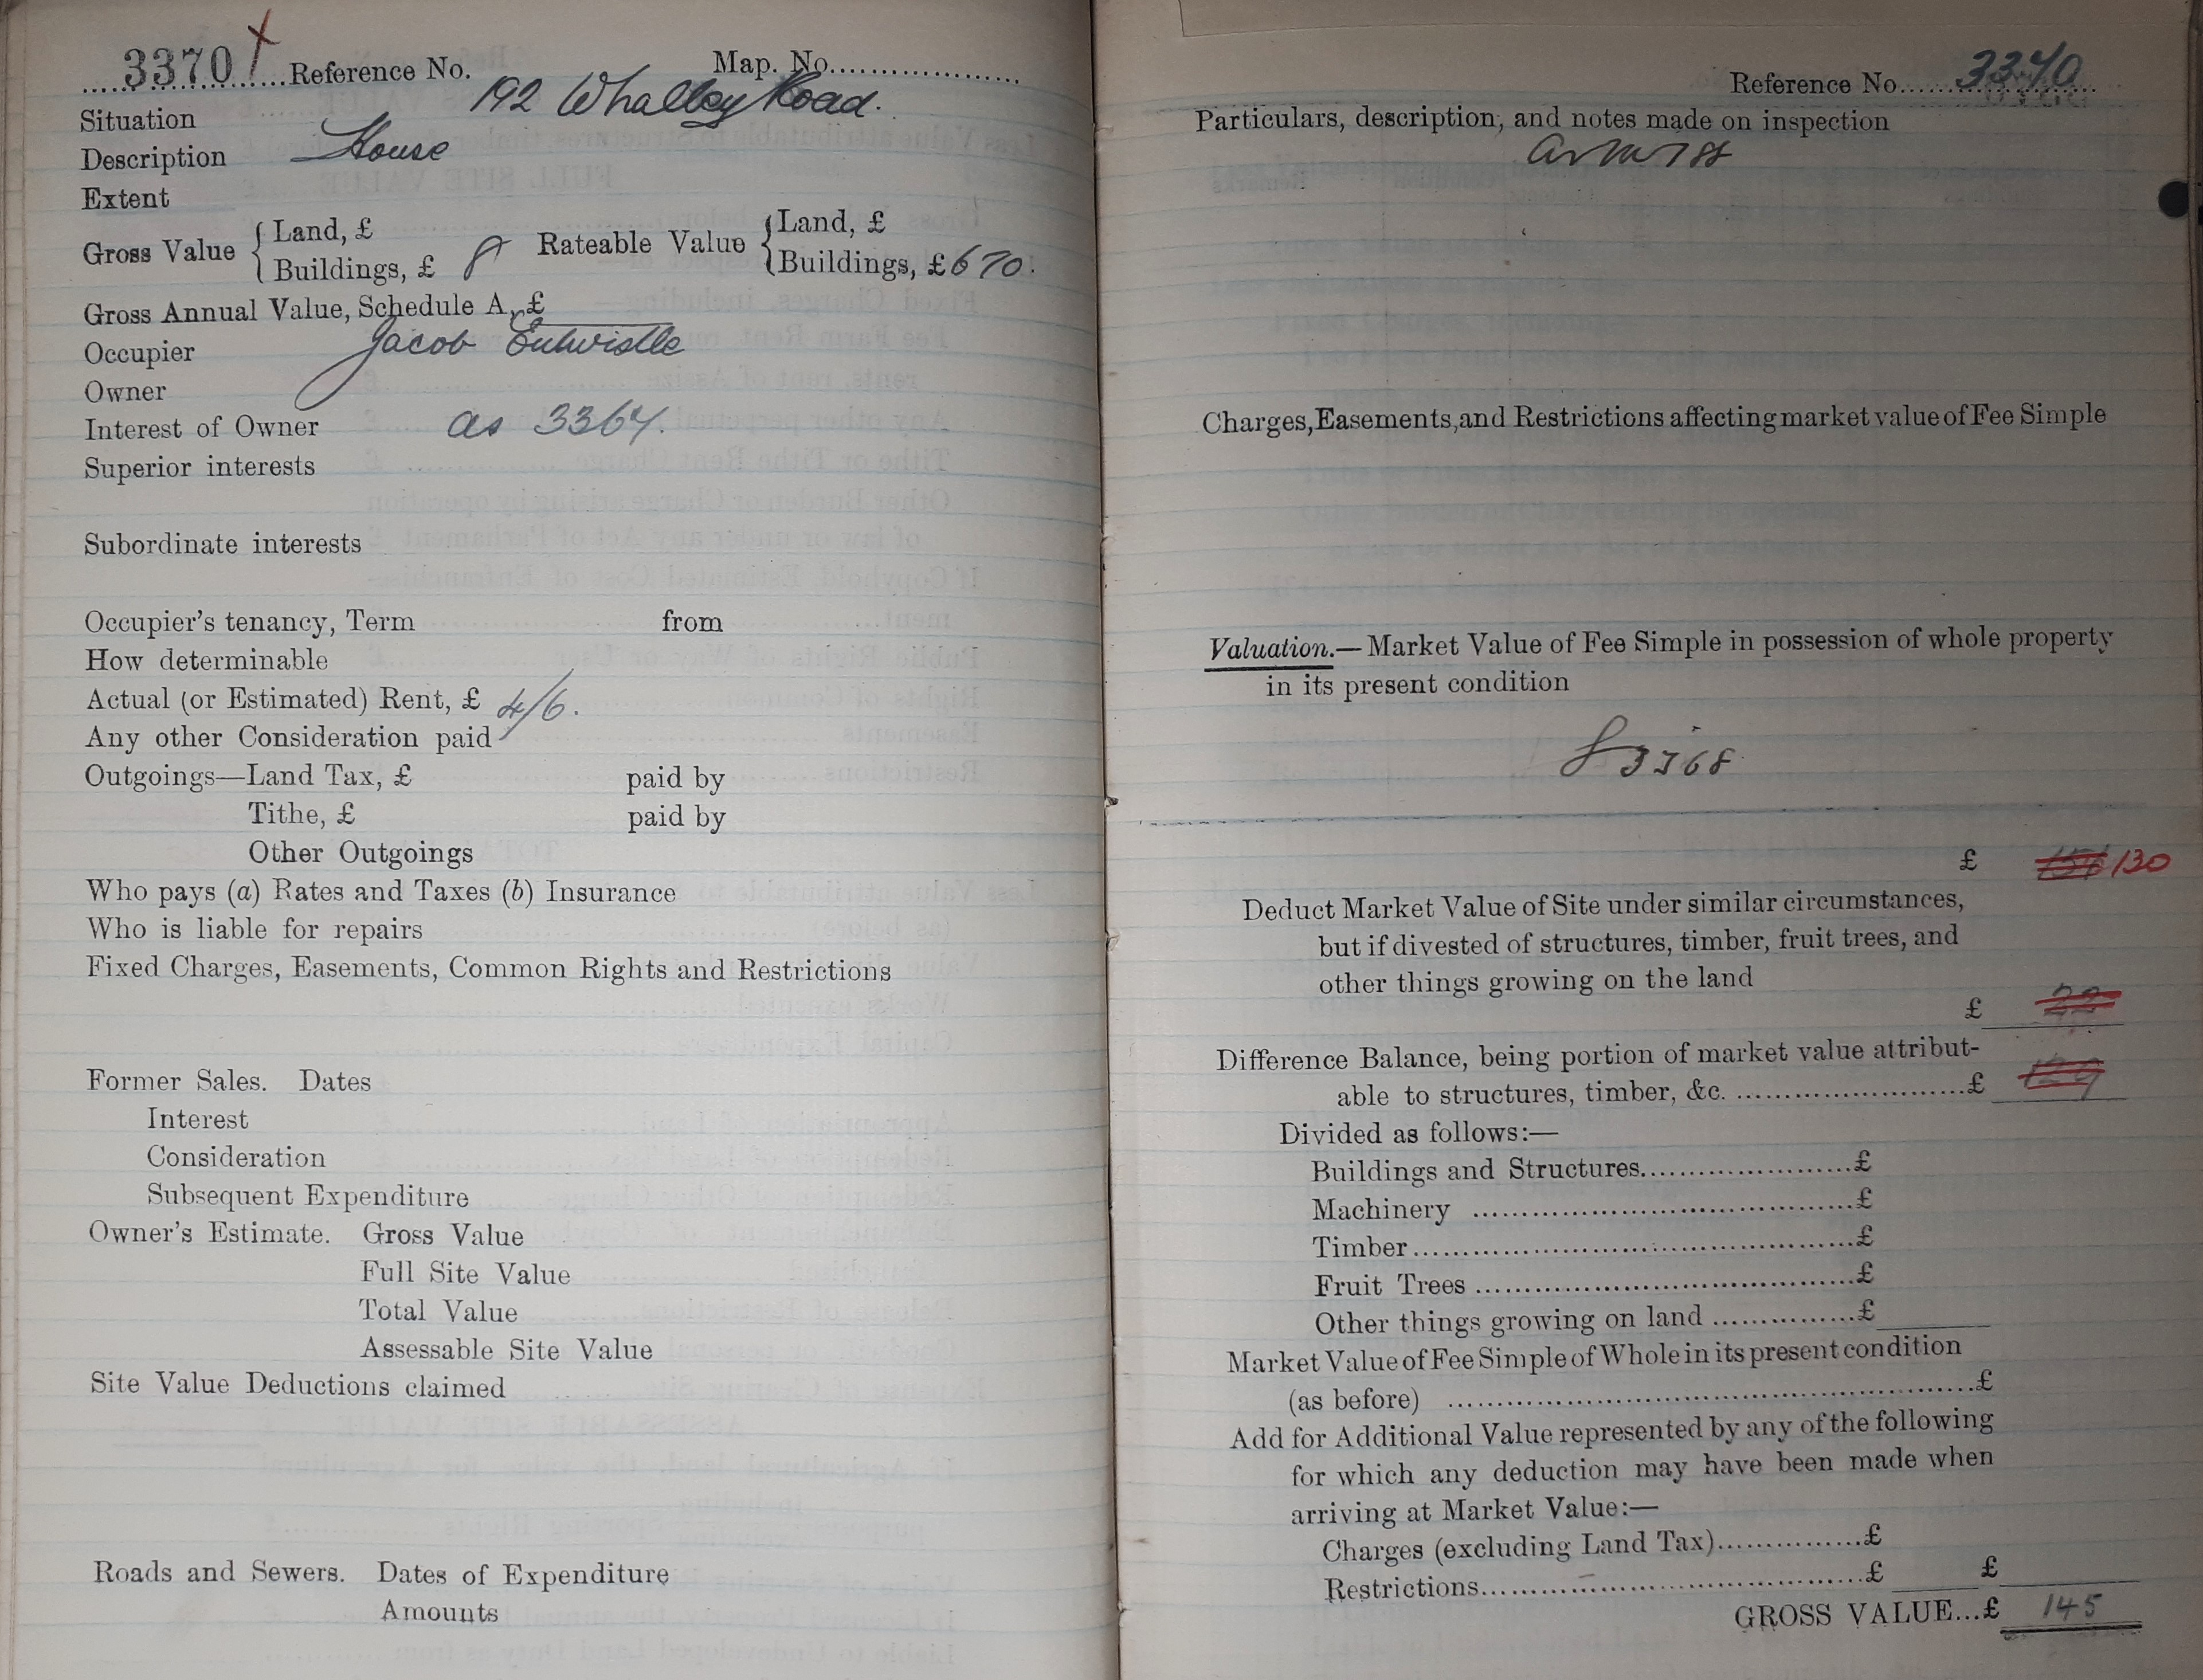 3370 Reference No. Map. No.
Situation 192 Whalley Road.
Description House
Extent
Gross Value { Land, £
Buildings, £ 8
Rateable Value { Land, £
Buildings, £ 6 70.
Gross Annual Value, Schedule A, £
Occupier Jacob Entwistle
Owner
Interest of Owner as 3364.
Superior interests
Subordinate interests
Occupier's tenancy, Term from
How determinable
Actual (or Estimated) Rent, £ 4/6.
Any other Consideration paid
Outgoings—Land Tax, £ paid by
Tithe, £ paid by
Other Outgoings
Who pays (a) Rates and Taxes (b) Insurance
Who is liable for repairs
Fixed Charges, Easements, Common Rights and Restrictions
Former Sales. Dates
Interest
Consideration
Subsequent Expenditure
Owner's Estimate. Gross Value
Full Site Value
Total Value
Assessable Site Value
Site Value Deductions claimed
Roads and Sewers. Dates of Expenditure
Amounts
Reference No.
Particulars, description, and notes made on inspection
Charges, Easements, and Restrictions affecting market value of Fee Simple
Valuation.—Market Value of Fee Simple in possession of whole property
in its present condition
£ 130
Deduct Market Value of Site under similar circumstances,
but if divested of structures, timber, fruit trees, and
other things growing on the land
£ 22
Difference Balance, being portion of market value attribut-
able to structures, timber, &c. £ 129
Divided as follows:—
Buildings and Structures £
Machinery £
Timber £
Fruit Trees £
Other things growing on land £
Market Value of Fee Simple of Whole in its present condition
(as before) £
Add for Additional Value represented by any of the following
for which any deduction may have been made when
arriving at Market Value:—
Charges (excluding Land Tax) £
Restrictions £ £
GROSS VALUE...£ 145